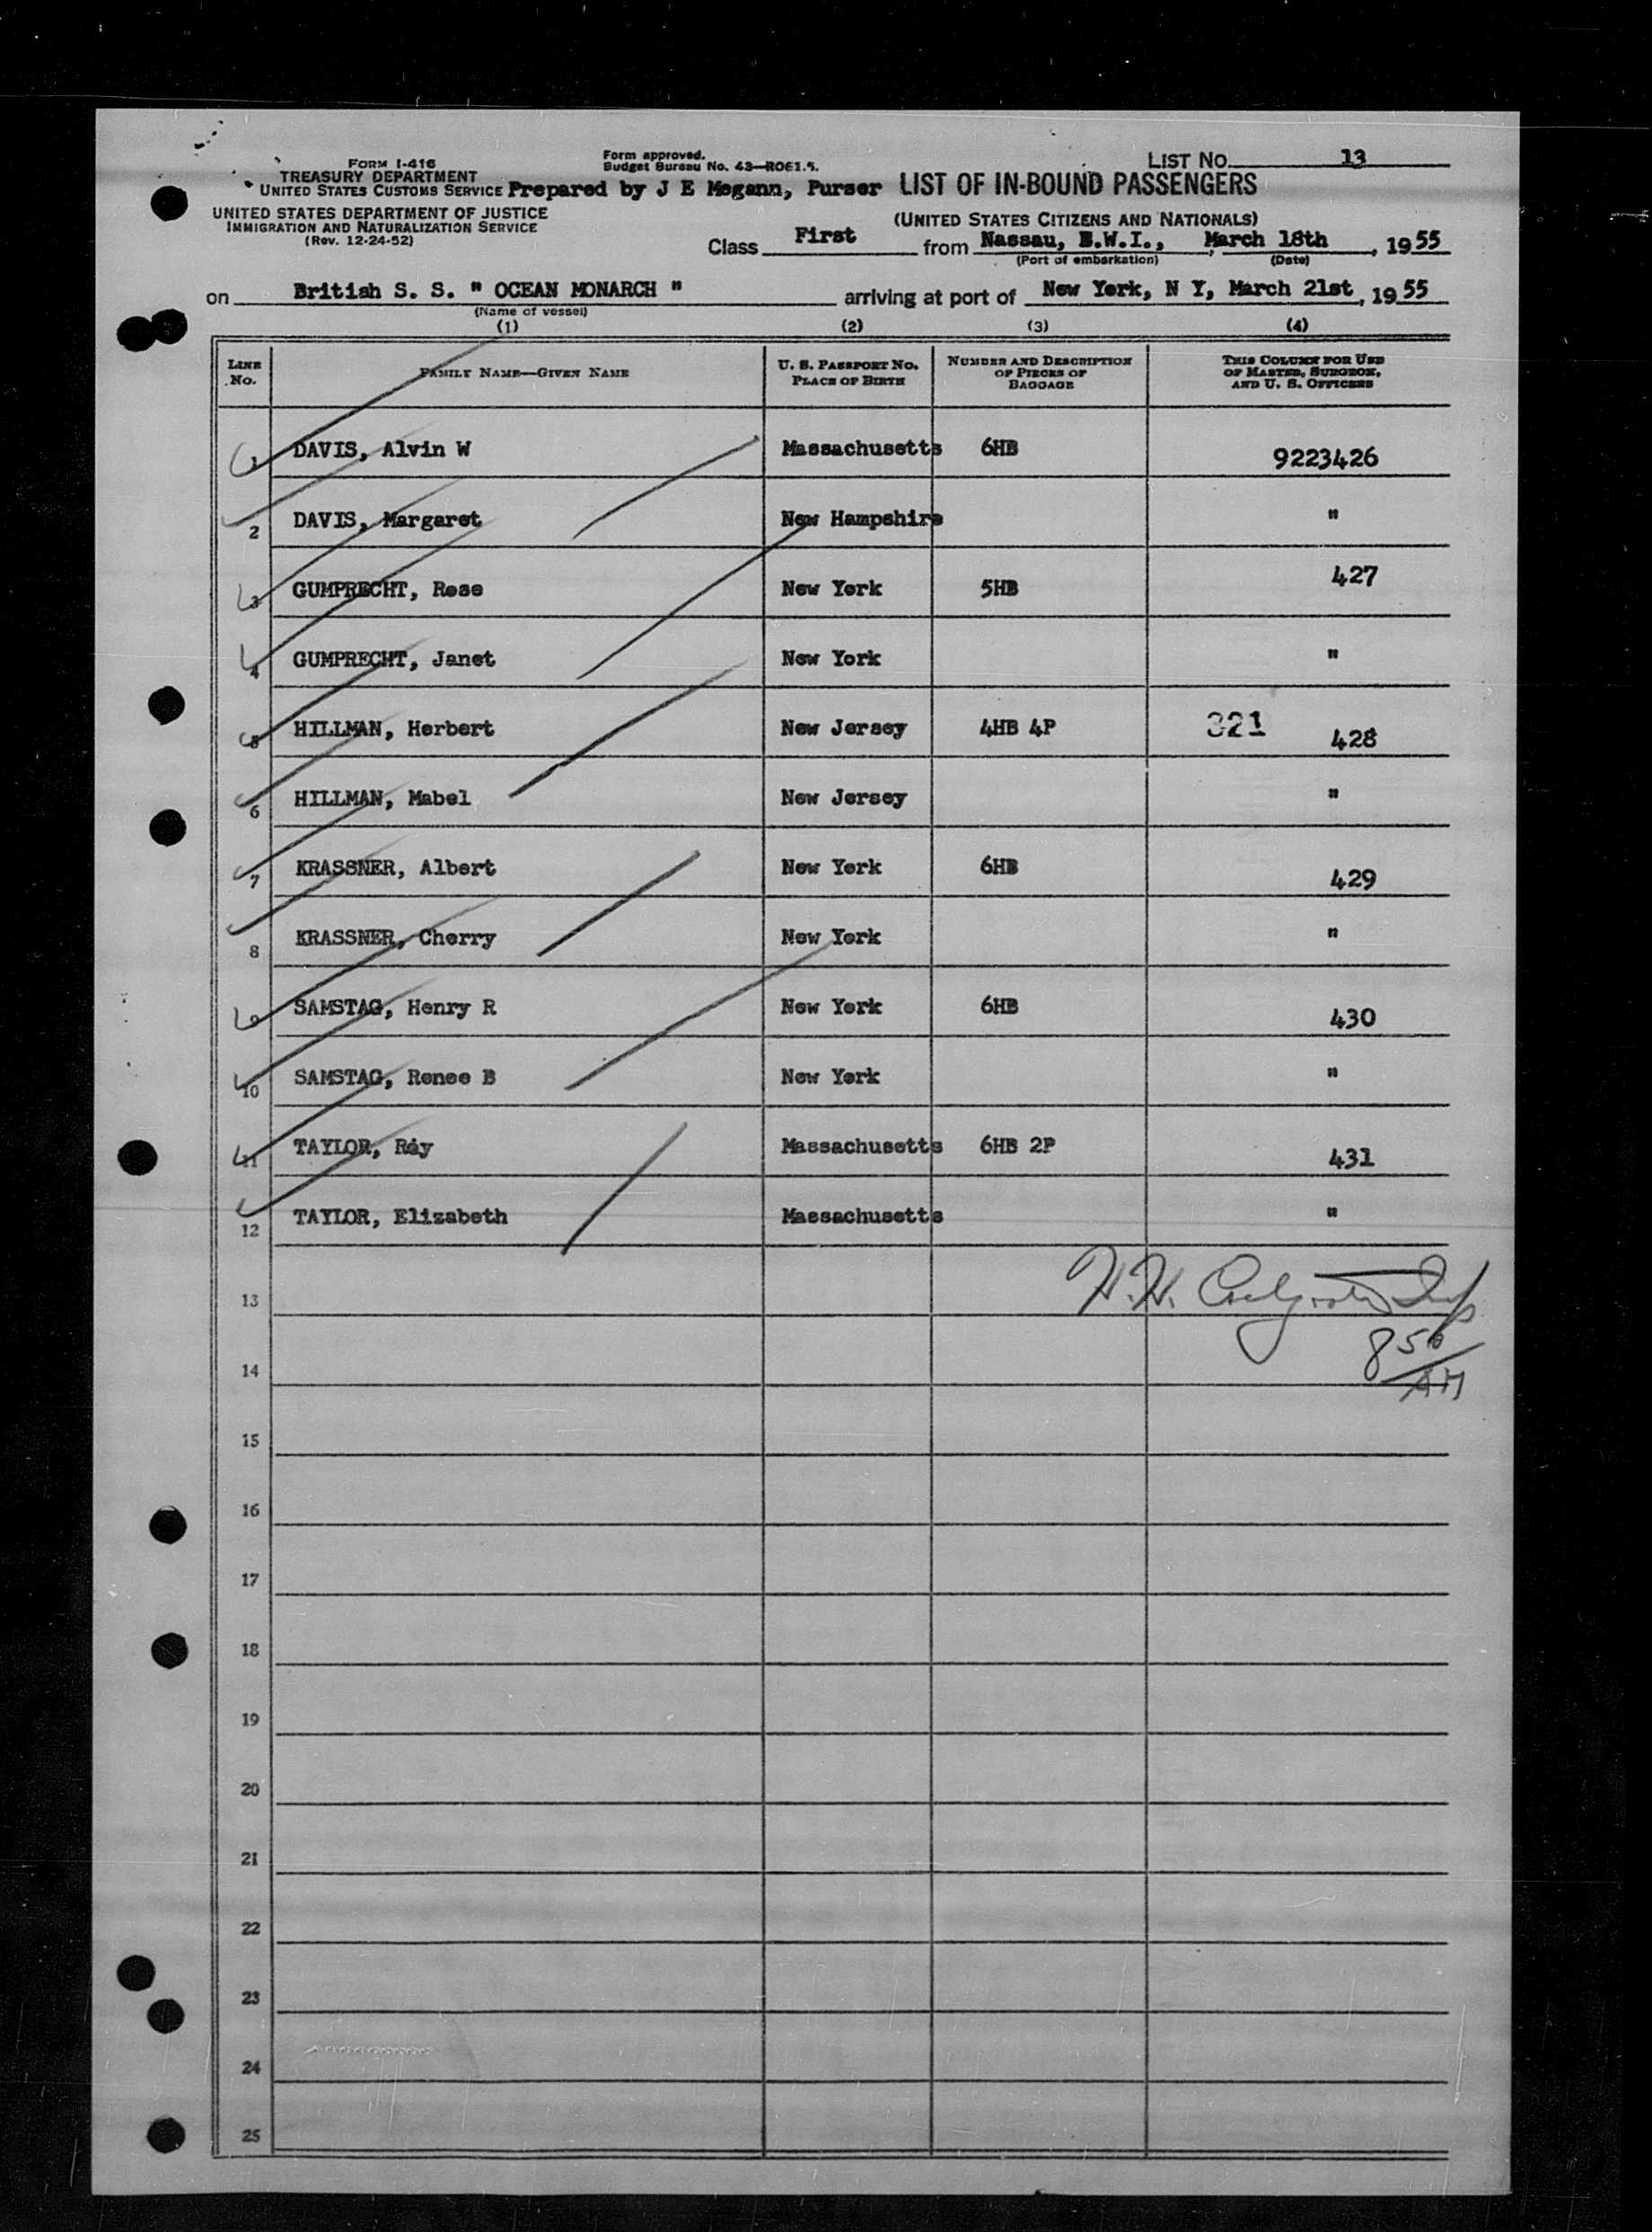 FORM I-416
TREASURY DEPARTMENT
UNITED STATES CUSTOMS SERVICE
UNITED STATES DEPARTMENT OF JUSTICE
IMMIGRATION AND NATURALIZATION SERVICE
(Rev. 12-24-52)
Form approved.
Budget Bureau No. 43—R061.5.
Prepared by J E Megann, Purser
LIST NO. 13
LIST OF IN-BOUND PASSENGERS
(UNITED STATES CITIZENS AND NATIONALS)
Class First from Nassau, B.W.I., March 18th, 1955
(Port of embarkation) (Date)
on British S. S. " OCEAN MONARCH " arriving at port of New York, N Y, March 21st, 1955
(Name of vessel)
(1) (2) (3) (4)
LINE No. FAMILY NAME—GIVEN NAME U. S. PASSPORT NO. PLACE OF BIRTH NUMBER AND DESCRIPTION OF PIECES OF BAGGAGE THIS COLUMN FOR USE OF MASTER, SURGEON, AND U. S. OFFICERS
1 DAVIS, Alvin W Massachusetts 6HB 9223426
2 DAVIS, Margaret New Hampshire "
3 GUMPRECHT, Rose New York 5HB 427
4 GUMPRECHT, Janet New York "
5 HILLMAN, Herbert New Jersey 4HB 4P 321 428
6 HILLMAN, Mabel New Jersey "
7 KRASSNER, Albert New York 6HB 429
8 KRASSNER, Cherry New York "
9 SAMSTAG, Henry R New York 6HB 430
10 SAMSTAG, Renee B New York "
11 TAYLOR, Ray Massachusetts 6HB 2P 431
12 TAYLOR, Elizabeth Massachusetts "
13 H.H.
14 8 50/AM
15
16
17
18
19
20
21
22
23
24
25